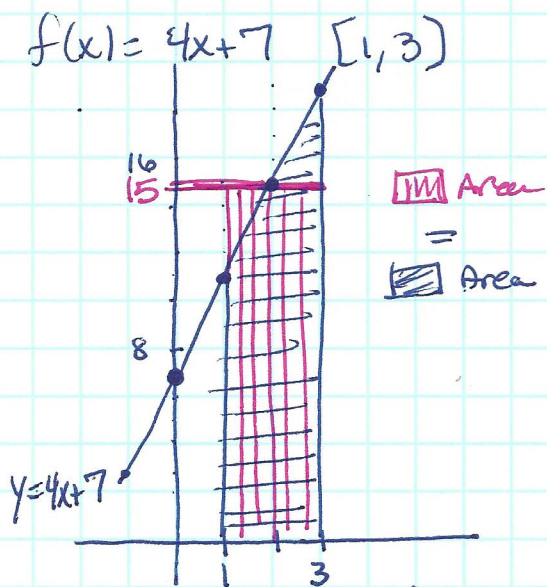 f(x) = 4x+7 [1,3]
16
15
Area
=
Area
8
y=4x+7
1
3